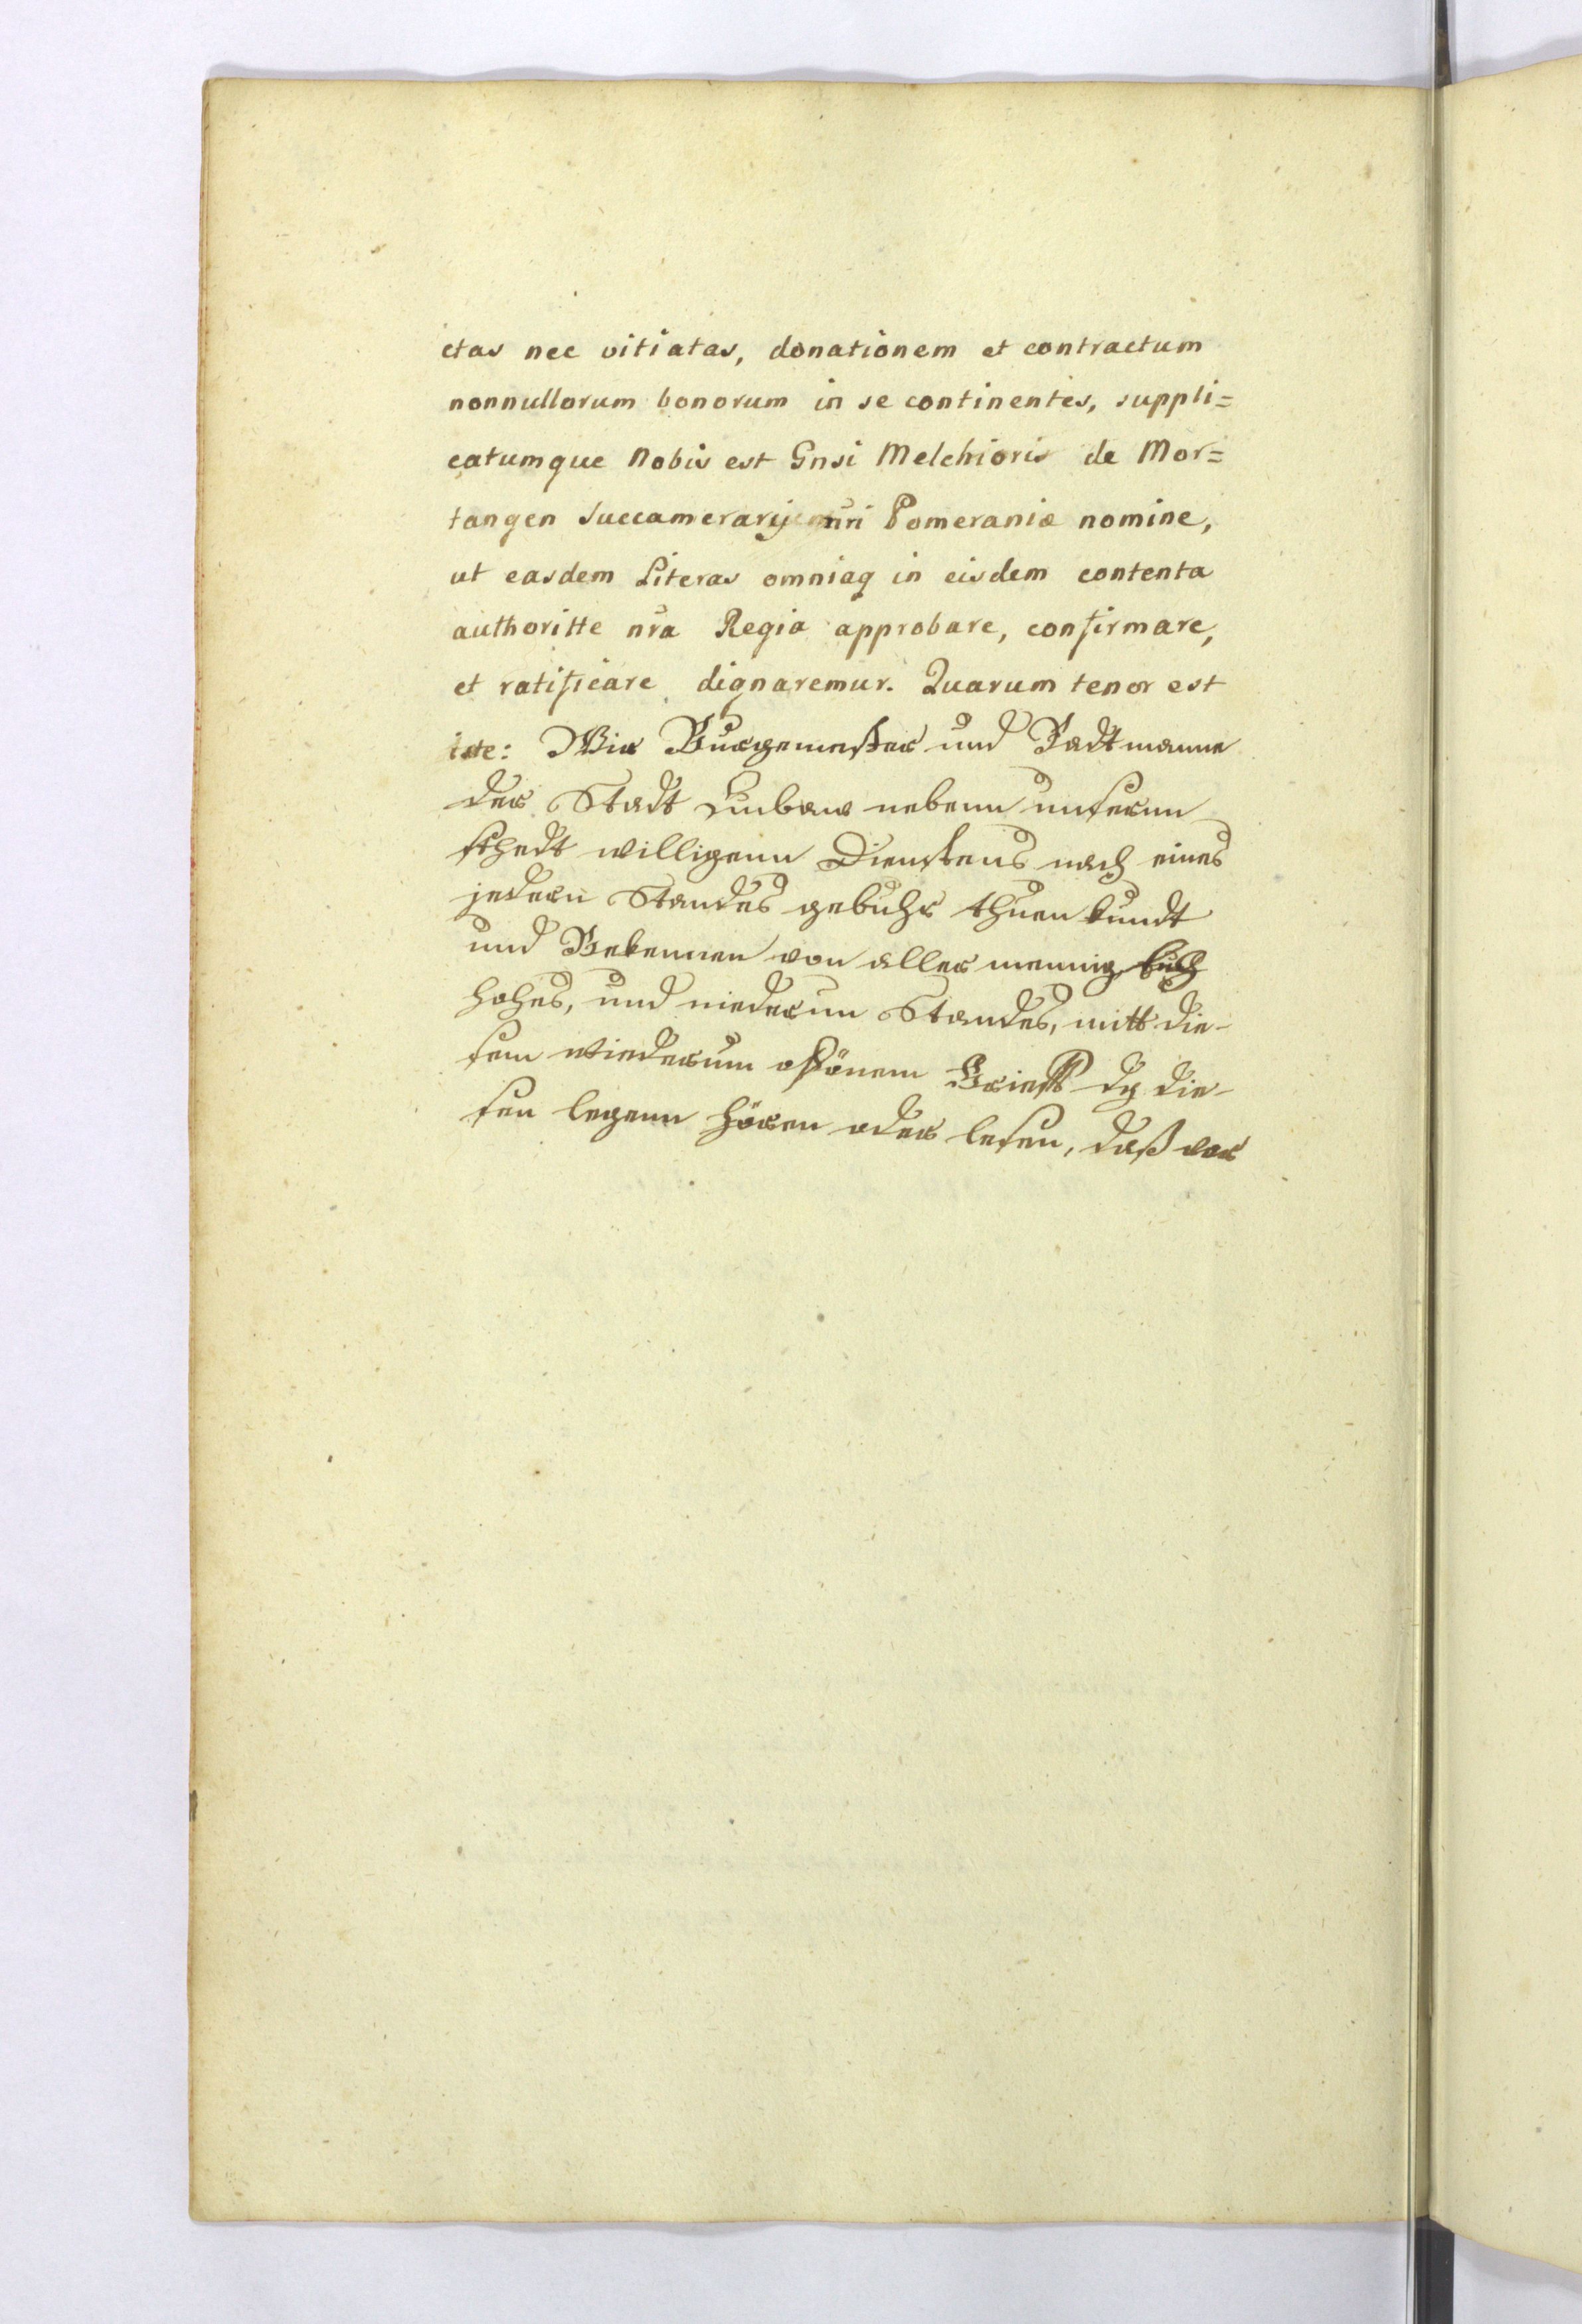 ctas nec vitiatas, donationem et contractum
nonnullorum bonorum in se continentes, suppli=
catumque Nobis est Gnsi Melchioris de Mor=
tangen Succamerarij nri Pomeraniæ nomine,
ut easdem Literas omniaq in eisdem contenta
authoritte nra Regia approbare, confirmare,
et ratificare dignaremur. Quarum tenor est
iste: Wir Burgemester und Radtmanne
der Stadt Lubaw nebenn unsernn
sthedt willigenn Dienstens nach eines
jedern Standes gebuhr thuen kundt
und Bekennen von aller mennig
hohes, und niedernn Standes, mitt die-
sem wiederum offönem Brieff dy die-
sen legenn hören oder lesen, daß vor